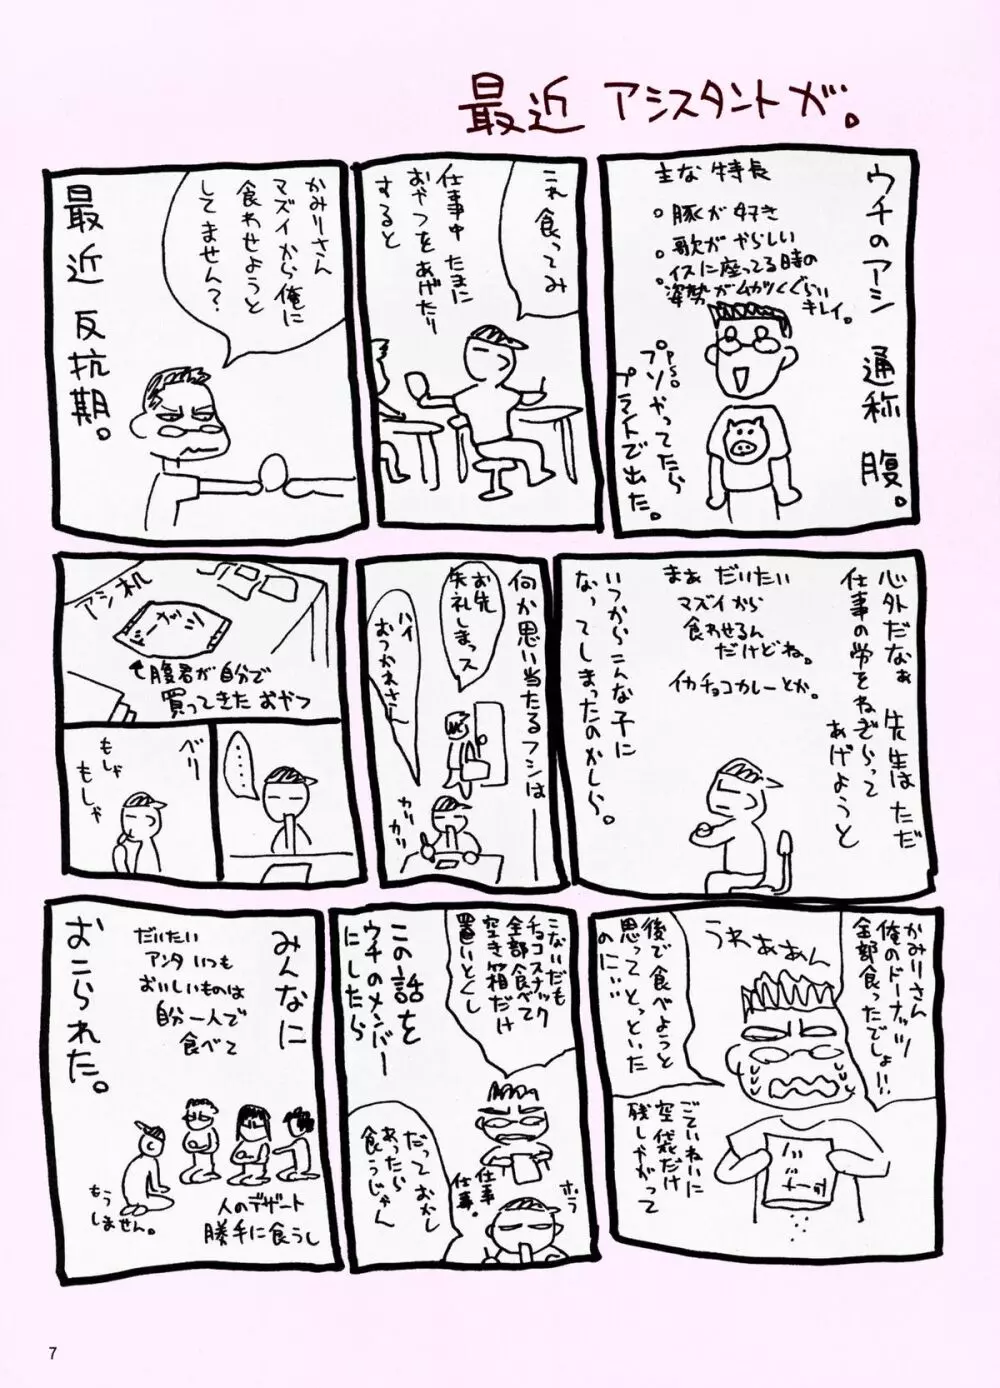 最近 アシスタントが。
ウチのアシ 通称 腹。
主な特長
。豚が好き
。歌がやらしい
。イスに座ってる時の
姿勢がムカツくぐらい
キレイ。
プソやってたら
プラントで出た。
これ食ってみ
仕事中たまに
おやつをあげたり
すると
かみりさん
マズイから俺に
食わせようと
してません？
最近 反抗期。
心外だなぁ 先生はただ
仕事の労をねぎらって
あげようと
まぁ だいたい
マズイから
食わせるん
だけどね。
イカチョコカレーとか。
いつからこんな子に
なってしまったのかしら。
何か思い当たるフシは
お先
失礼しまっス
ハイ
おつかれさん
カリカリ
アシ机
腹君が自分で
買ってきたおやつ
……
ベリ
もしゃ
もしゃ
かみりさん
俺のドーナッツ
全部食ったでしょ!!
うわぁあん
後で食べようと
思ってとっといた
のに…
ごていねいに
空袋だけ
残しやがって
こないだも
チョコスナック
全部食べて
空き箱だけ
置いとくし
ホラ
仕事
仕事。
だっておかし
あったら
食うじゃん
この話を
ウチのメンバー
にしたら
みんなに
おこられた。
だいたい
アンタいつも
おいしいものは
自分一人で
食べて
人のデザート
勝手に食うし
もう
しません。
7